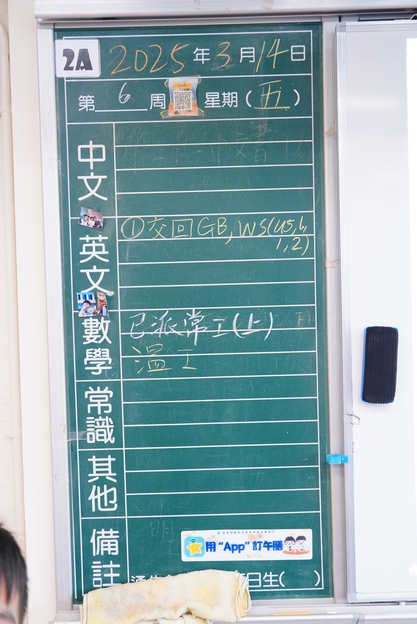 2A 2025年3月14日
第6周 星期(五)
中文
英文 ①交回GB, WS(U5,6,
1,2)
數學 已派常工(上)
溫工
常識
其他
備註
用“App”訂午膳
日生( )